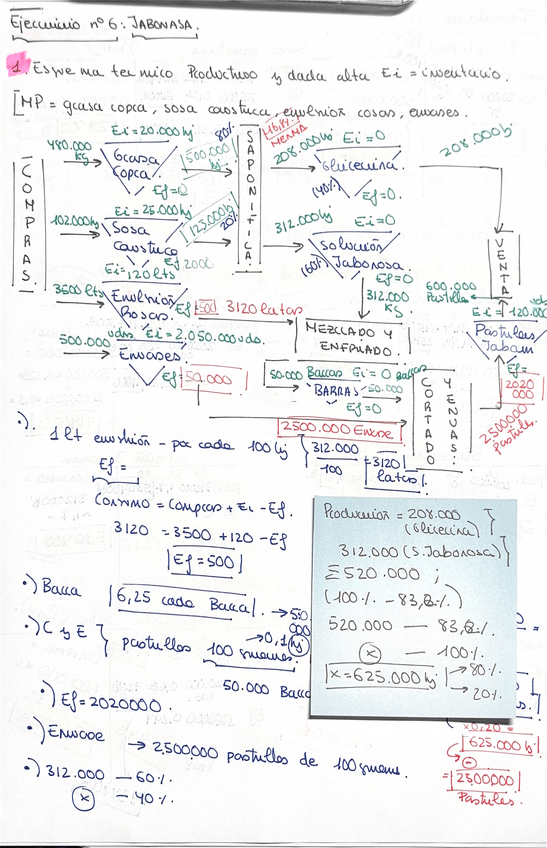 Ejercicio nº 6: JABONASA.
1. Esquema termico Productivo y dada alta Ei = inventario.
MP = grasa copra, sosa caustica, emulsion rosas, envases.
COMPRAS
480.000 kg
Ei = 20.000 kg
Grasa Copra
Ef = 0
80%
500.000 kg
102.000 kg
Ei = 25.000 kg
Sosa Caustica
Ef 2000
125.000 kg
20%
SAPONIFICA.
16,8%
MERMA
208.000 kg
Ei = 0
Glicerina
(40%)
Ef = 0.
208.000 kg
312.000 kg
Ei = 0
Solución Jabonosa
(60%)
Ef = 0
312.000 KG
VENTA
600.000 Pastillas
Ei = 120.000 uds
Pastillas Jabon
Ef = 2020 000
2500000 pastill.
3500 lts
Ei = 120 lts
Emulsion Rosas
Ef 500
3120 latas
MEZCLADO Y ENFRIADO
500.000 uds
Ei = 2,050.000 uds.
Envases
Ef 50.000
50.000 Barras
Ei = 0 Barras
BARRAS
50.000
Ef = 0
CORTADO Y ENVAS.
2500.000 Envase
·). 1 lt emulsión - por cada 100 kg
312.000
100
= 3120 latas
Ef =
Consumo = Compras + Ei - Ef.
3120 = 3500 + 120 - Ef
Ef = 500
·) Barra 6,25 cada Barra. → 50 000
·) C y E pastillas 100 gramos.
→ 0,1 kg
50.000 Barra
·) Ef = 2020000.
·) Envase → 2,500000 pastillas de 100 gramos.
·) 312.000 — 60%.
x — 40%.
Produccion = 208.000 (Glicerina)
312.000 (S. Jabonosa)
Σ 520.000 ;
(100% - 83,2%)
520.000 — 83,2%.
x — 100%.
x = 625.000 kg → 80%
→ 20%.
x 0,20 =
625.000 kg
= 2500000
Pastillas.